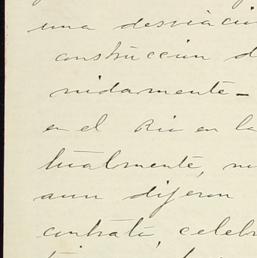 una desviació
construccion d
nidamente-
en el Rio en la
tualmente, no
aun dijeron
contrato, celebr